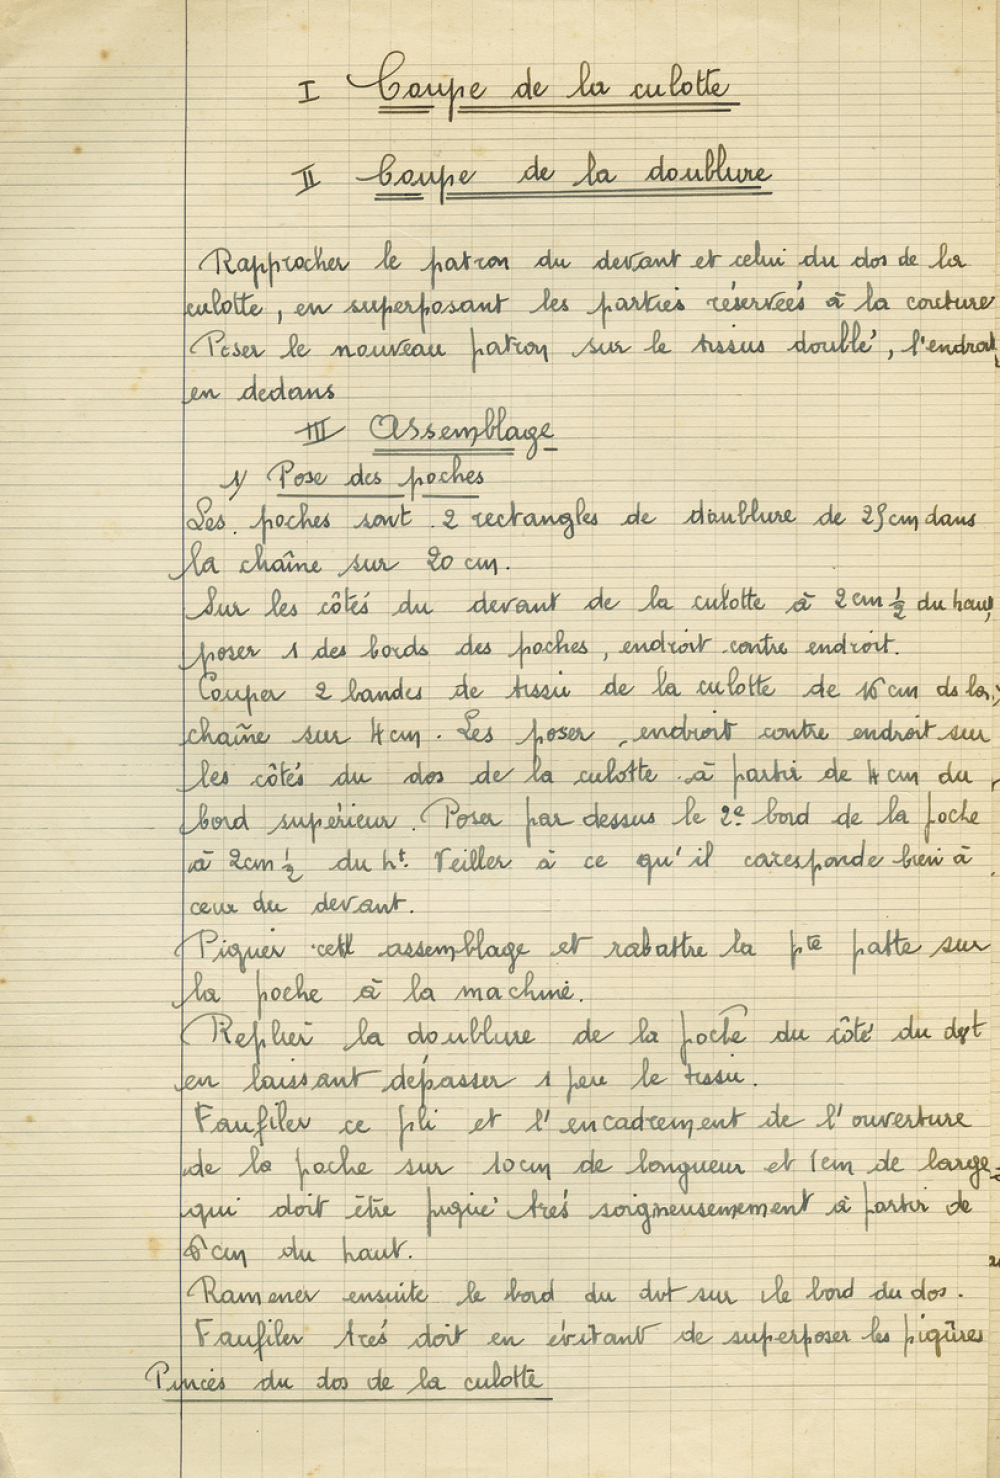 I Coupe de la culotte
II Coupe de la doublure
Rapprocher le patron du devant et celui du dos de la
culotte, en superposant les parties réservées à la couture
Poser le nouveau patron sur le tissus doublé, l'endroit
en dedans
III Assemblage
1) Pose des poches
Les poches sont 2 rectangles de doublure de 25 cm dans
la chaîne sur 20 cm.
Sur les côtés du devant de la culotte à 2 cm ½ du haut,
poser 1 des bords des poches, endroit contre endroit.
Couper 2 bandes de tissu de la culotte de 16 cm ds la
chaîne sur 4 cm. Les poser, endroit contre endroit sur
les côtés du dos de la culotte à partir de 4 cm du
bord supérieur. Poser par dessus le 2e bord de la poche
à 2 cm ½ du ht. Veiller à ce qu'il coresponde bien à
ceux du devant.
Piquer cett assemblage et rabattre la pte patte sur
la poche à la machine.
Replier la doublure de la poche du côté du dvt
en laissant dépasser 1 peu le tissu.
Faufiler ce pli et l'encadrement de l'ouverture
de la poche sur 10 cm de longueur et 1 cm de large
qui doit être piqué très soigneusemement à partir de
6 cm du haut.
Ramener ensuite le bord du dvt sur le bord du dos.
Faufiler très doit en évitant de superposer les piqûres
Pinces du dos de la culotte